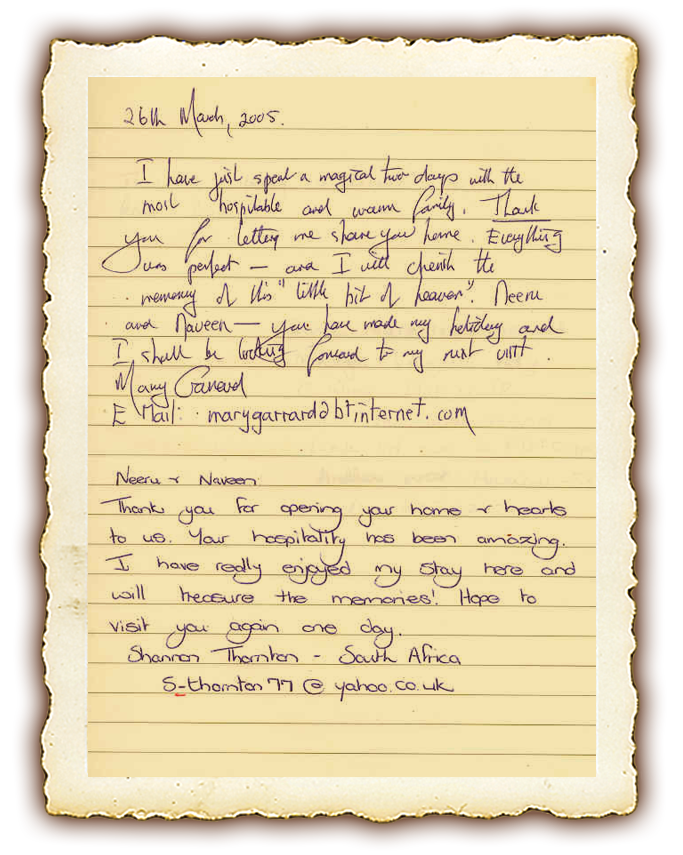 26th March, 2005.
I have just spent a magical two days with the
most hospitable and warm family. Thank
you for letting me share your home. Everything
was perfect — and I will cherish the
memory of this "little bit of heaven". Neeru
and Naveen — you have made my holiday and
I shall be looking forward to my next visit.
Mary Garrard
E Mail: marygarrard@btinternet.com
Neeru & Naveen
Thank you for opening your home & hearts
to us. Your hospitality has been amazing.
I have really enjoyed my stay here and
will treasure the memories! Hope to
visit you again one day.
Shannon Thornton - South Africa
S_thornton77@yahoo.co.uk